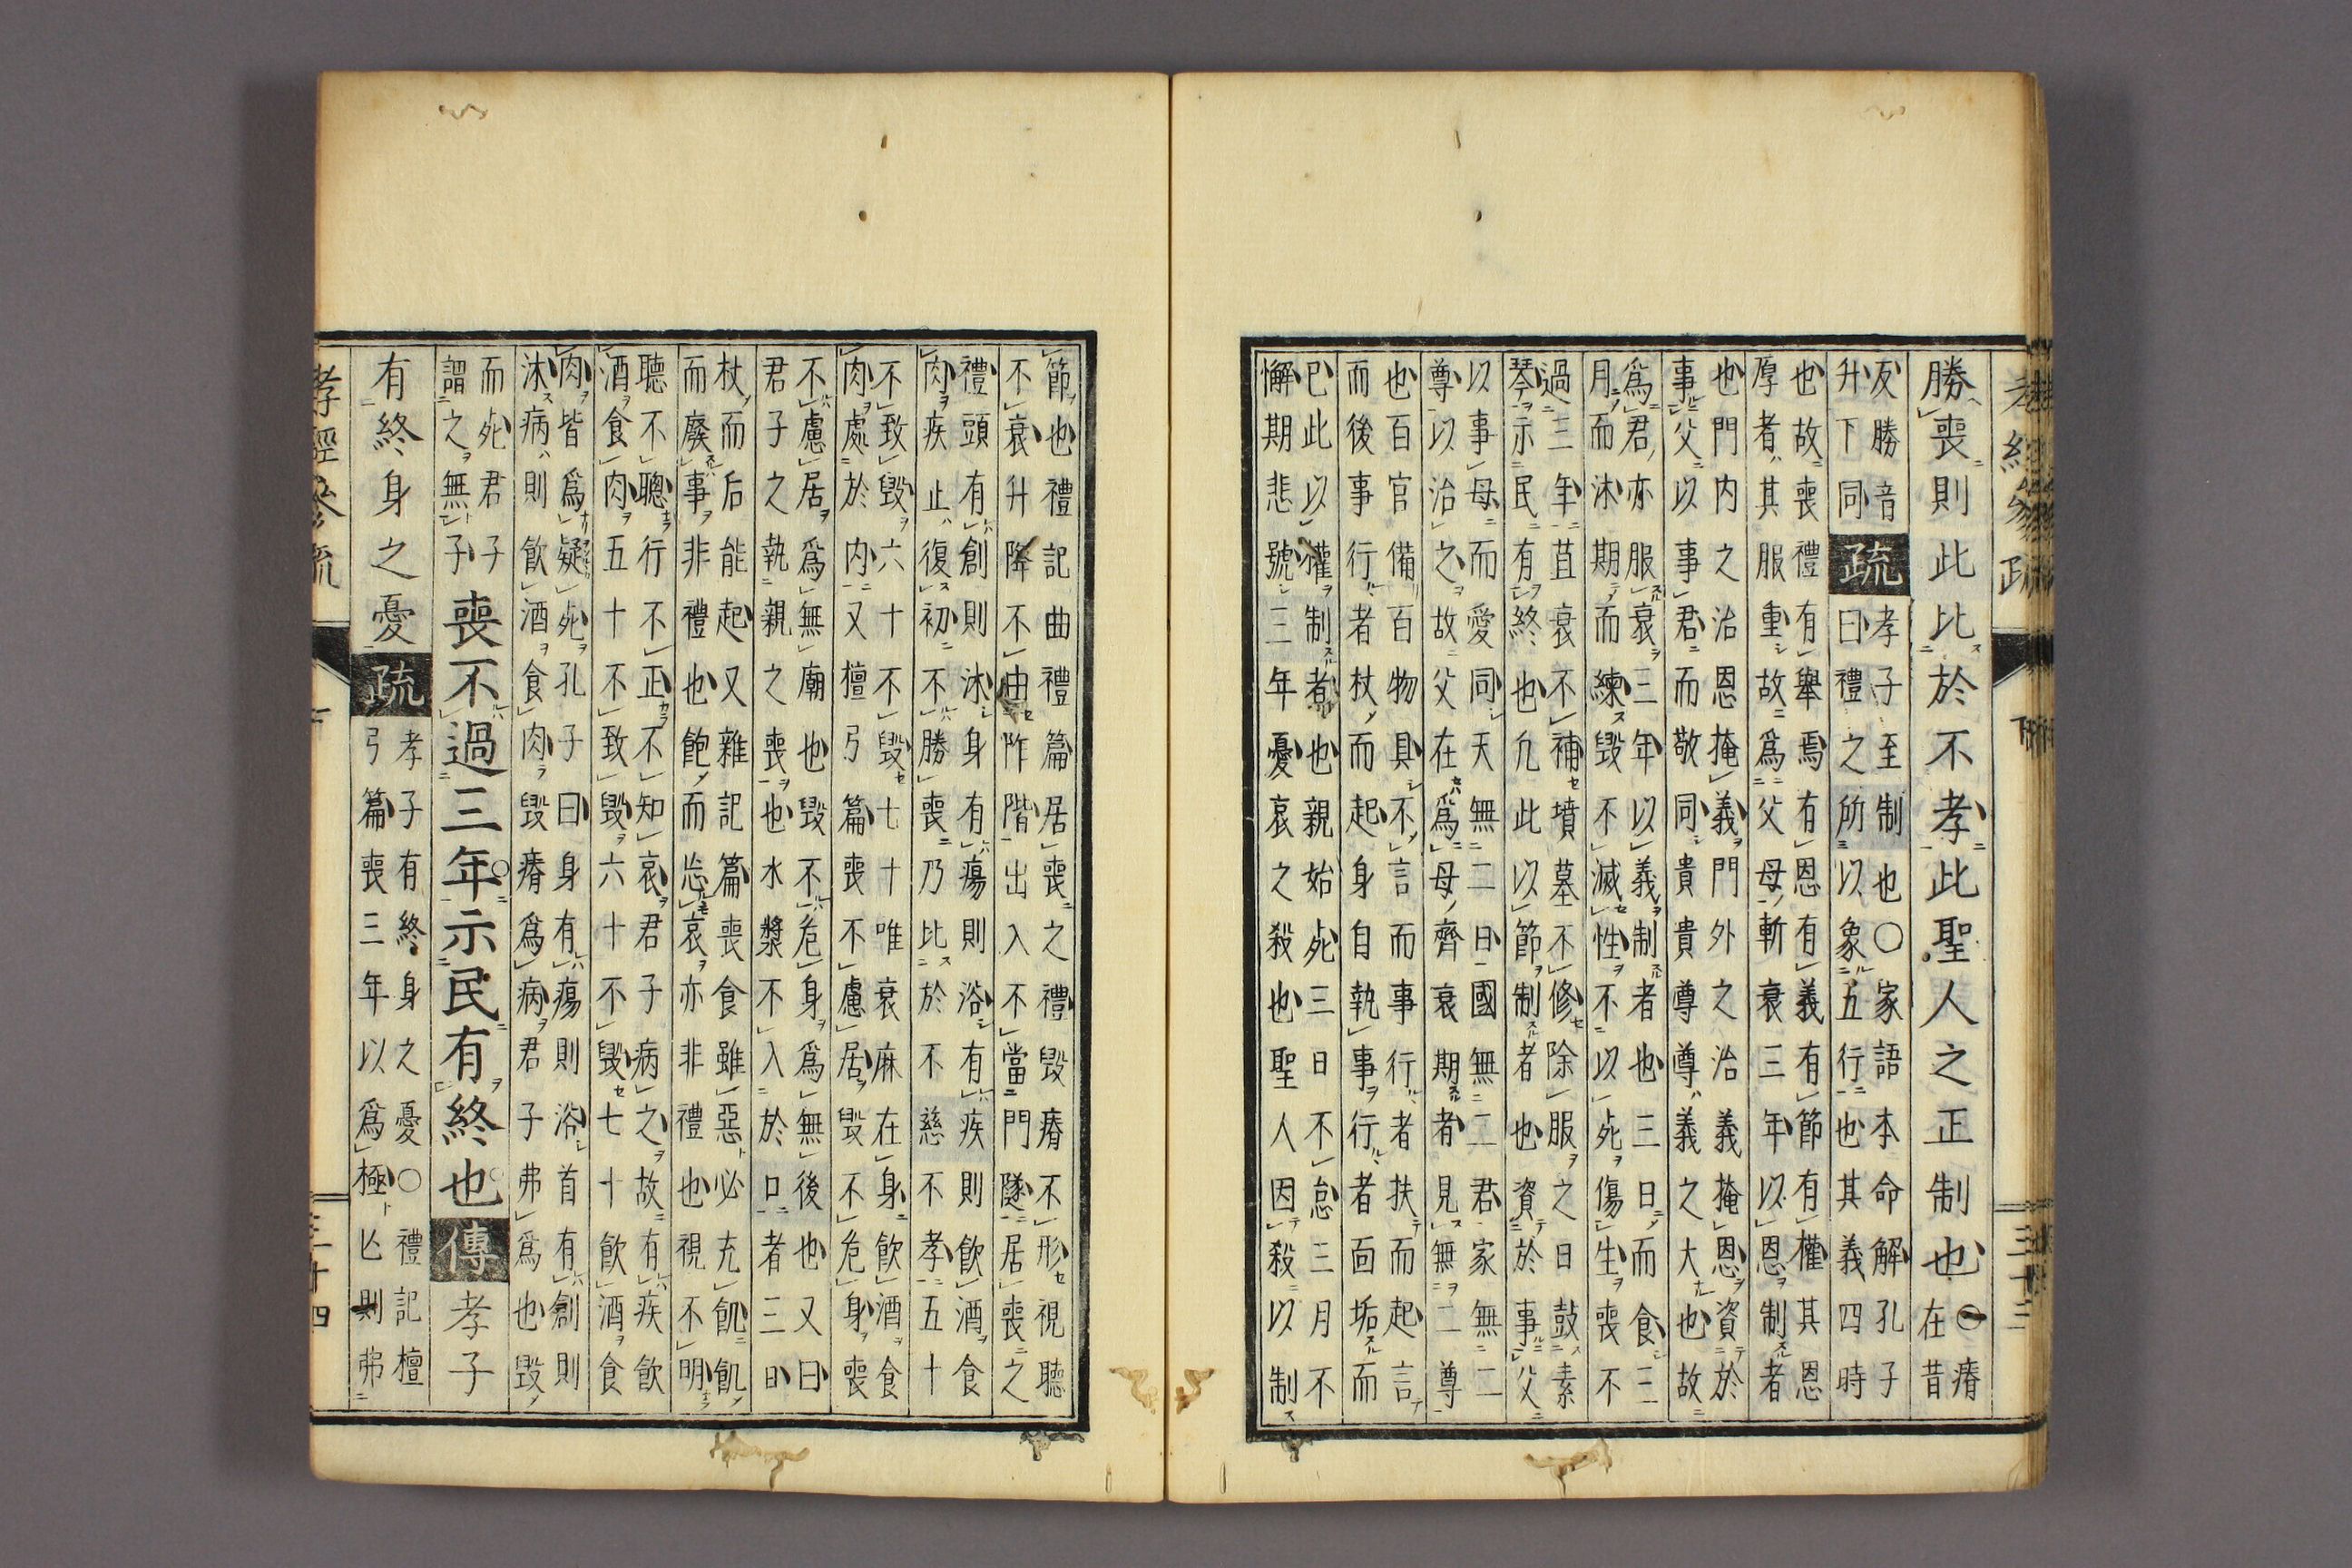 孝經參疏　下　三十三
勝喪則此比於不孝此聖人之正制也○瘠
在昔
反勝音
升下同
疏
孝子至制也○家語本命解孔子
曰禮之所以象五行也其義四時
也故喪禮有舉焉有恩有義有節有權其恩
厚者其服重故爲父母斬衰三年以恩制者
也門内之治恩掩義門外之治義掩恩資於
事父以事君而敬同貴貴尊尊義之大也故
爲君亦服衰三年以義制者也三日而食三
月而沐期而練毀不滅性不以死傷生喪不
過三年苴衰不補墳墓不修除服之日鼓素
琴示民有終也凢此以節制者也資於事父
以事母而愛同天無二日國無二君家無二
尊以治之故父在爲母齊衰期者見無二尊
也百官備百物具不言而事行者扶而起言
而後事行者杖而起身自執事行者面垢而
已此以權制者也親始死三日不怠三月不
懈期悲號三年憂哀之殺也聖人因殺以制
節也禮記曲禮篇居喪之禮毀瘠不形視聽
不衰升降不由阼階出入不當門隧居喪之
禮頭有創則沐身有瘍則浴有疾則飲酒食
肉疾止復初不勝喪乃比於不慈不孝五十
不致毀六十不毀七十唯衰麻在身飲酒食
肉處於内又檀弓篇喪不慮居毀不危身喪
不慮居爲無廟也毀不危身爲無後也又曰
君子之執親之喪也水漿不入於口者三日
杖而后能起又雜記篇喪食雖惡必充飢飢
而廢事非禮也飽而忘哀亦非禮也視不明
聽不聰行不正不知哀君子病之故有疾飲
酒食肉五十不致毀六十不毀七十飲酒食
肉皆爲疑死孔子曰身有瘍則浴首有創則
沐病則飲酒食肉毀瘠爲病君子弗爲也毀
而死君子
謂之無子
喪不過三年示民有終也傳孝子
有終身之憂疏
孝子有終身之憂○禮記檀
弓篇喪三年以爲極亡則弗
孝經參疏　下　三十四